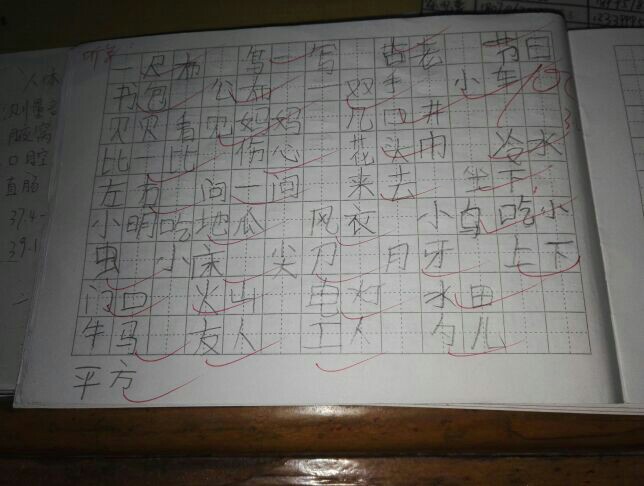 听写
一尺布 笃一写 古老 节目
书包 公布 一双手 小车 100
贝贝看见妈妈 几口井
比一比 伤心 花头巾 冷水
左右 问一问 来去 坐下
小明吃地瓜 风衣 小鸟吃小
虫 小床 尖刀 月牙 上下
门口 火山 电灯 水田
牛马 友人 工人 勺儿
平方
人体
测量
腋窝
口腔
直肠
37.4-
39.1